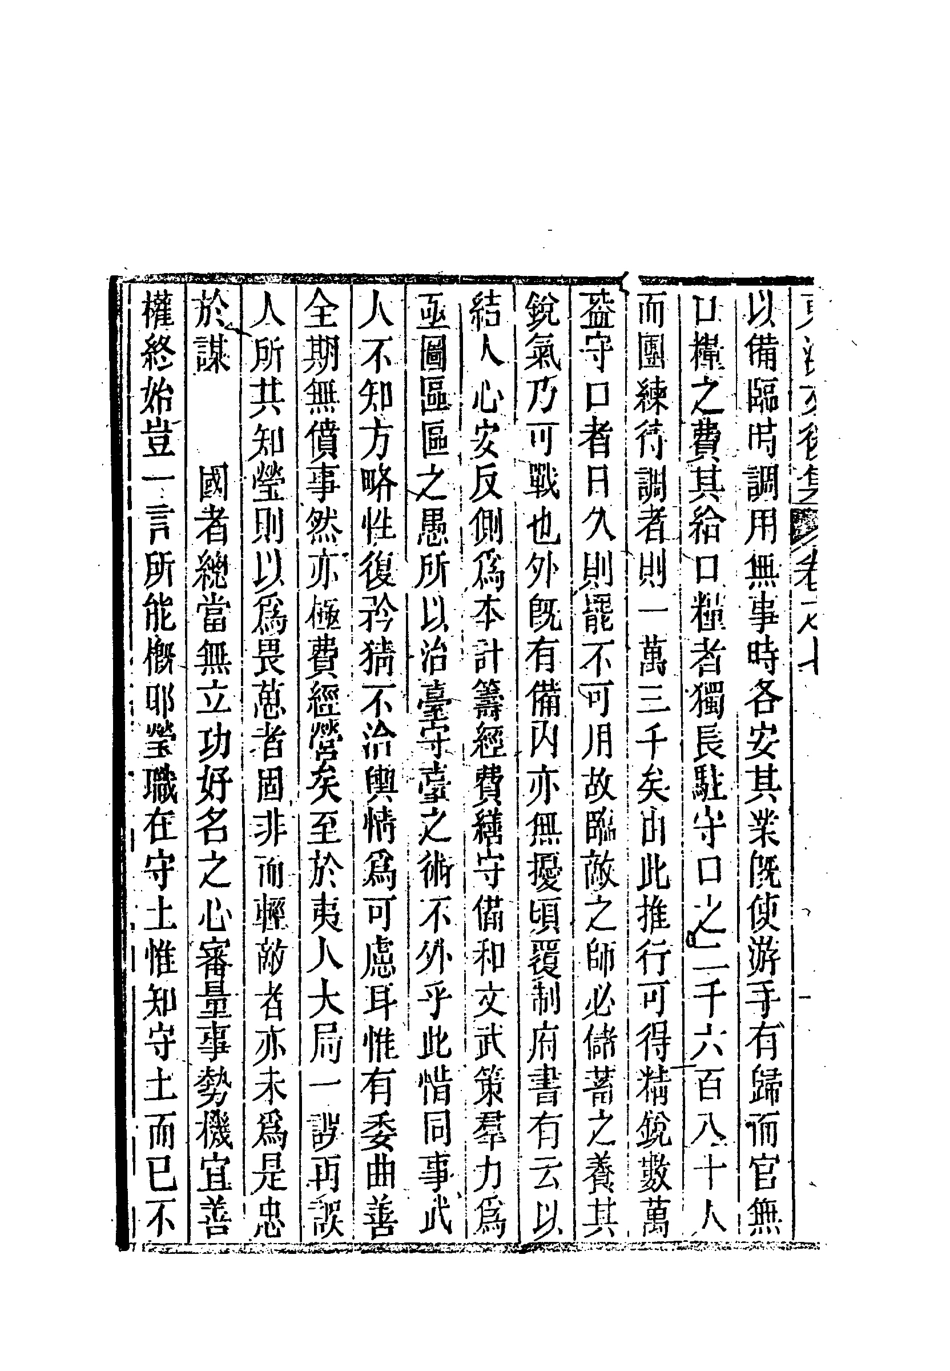 東溟文後集 卷之七
以備臨時調用無事時各安其業旣使游手有歸而官無
口糧之費其給口糧者獨長駐守口之二千六百八十人
而團練待調者則一萬三千矣由此推行可得精銳數萬
葢守口者日久則罷不可用故臨敵之師必儲蓄之養其
銳氣乃可戰也外旣有備內亦無擾頃覆制府書有云以
結人心安反側爲本計籌經費繕守備和文武策羣力爲
亟圖區區之愚所以治臺守臺之術不外乎此惜同事武
人不知方略性復矜猜不洽輿情爲可慮耳惟有委曲善
全期無僨事然亦極費經營矣至於夷人大局一誤再誤
人所共知瑩則以爲畏葸者固非而輕敵者亦未爲是忠
於謀　　國者總當無立功好名之心審量事勢機宜善
權終始豈一言所能槪耶瑩職在守土惟知守土而已不